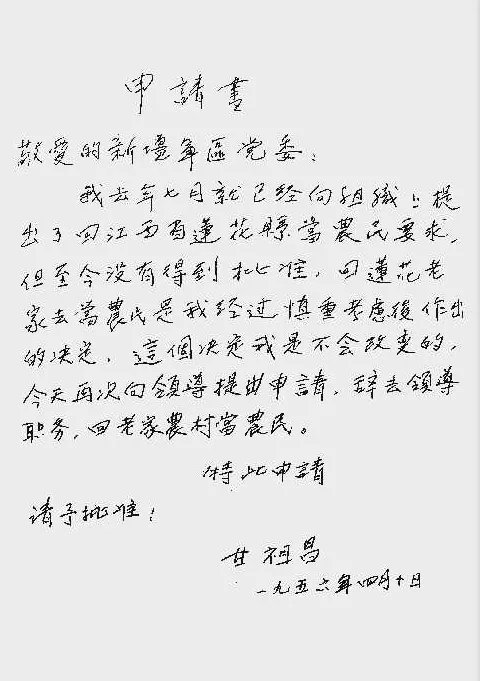 申請書
敬愛的新壃軍區党委：
我去年七月就已经向组織上提
出了回江西省蓮花縣當農民要求，
但至今没有得到批准，回蓮花老
家去當農民是我经过慎重考慮後作出
的决定，這個决定我是不会改变的，
今天再次向領導提出申請，辞去領導
职务，回老家農村當農民。
特此申請
请予批准！
甘祖昌
一九五六年四月十日